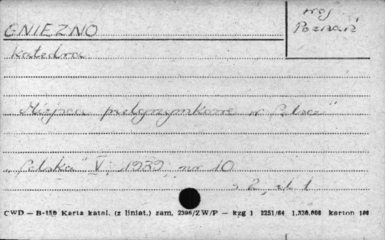 woj
GNIEZNO Poznań
Katedra
"Miejsca pielgrzymkowe w Polsce"
"Polska" V, 1939 nr 10
s 2, il. 1
CWD — B-150 Karta katal. (z liniat.) zam. 2390/ZW/P — kzg 1 2251/64 1,330.000 karton 180